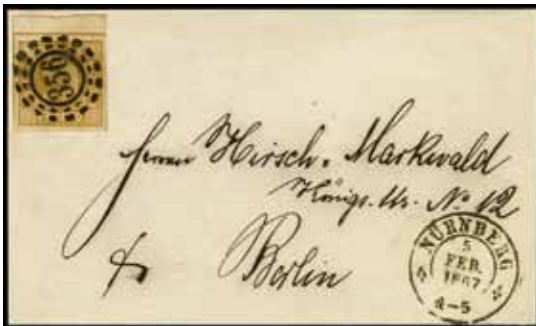 356
Herrn Hirsch. Markwald
Königs. Str. No. 12
Berlin
NÜRNBERG
5
FEB.
1867
4-5